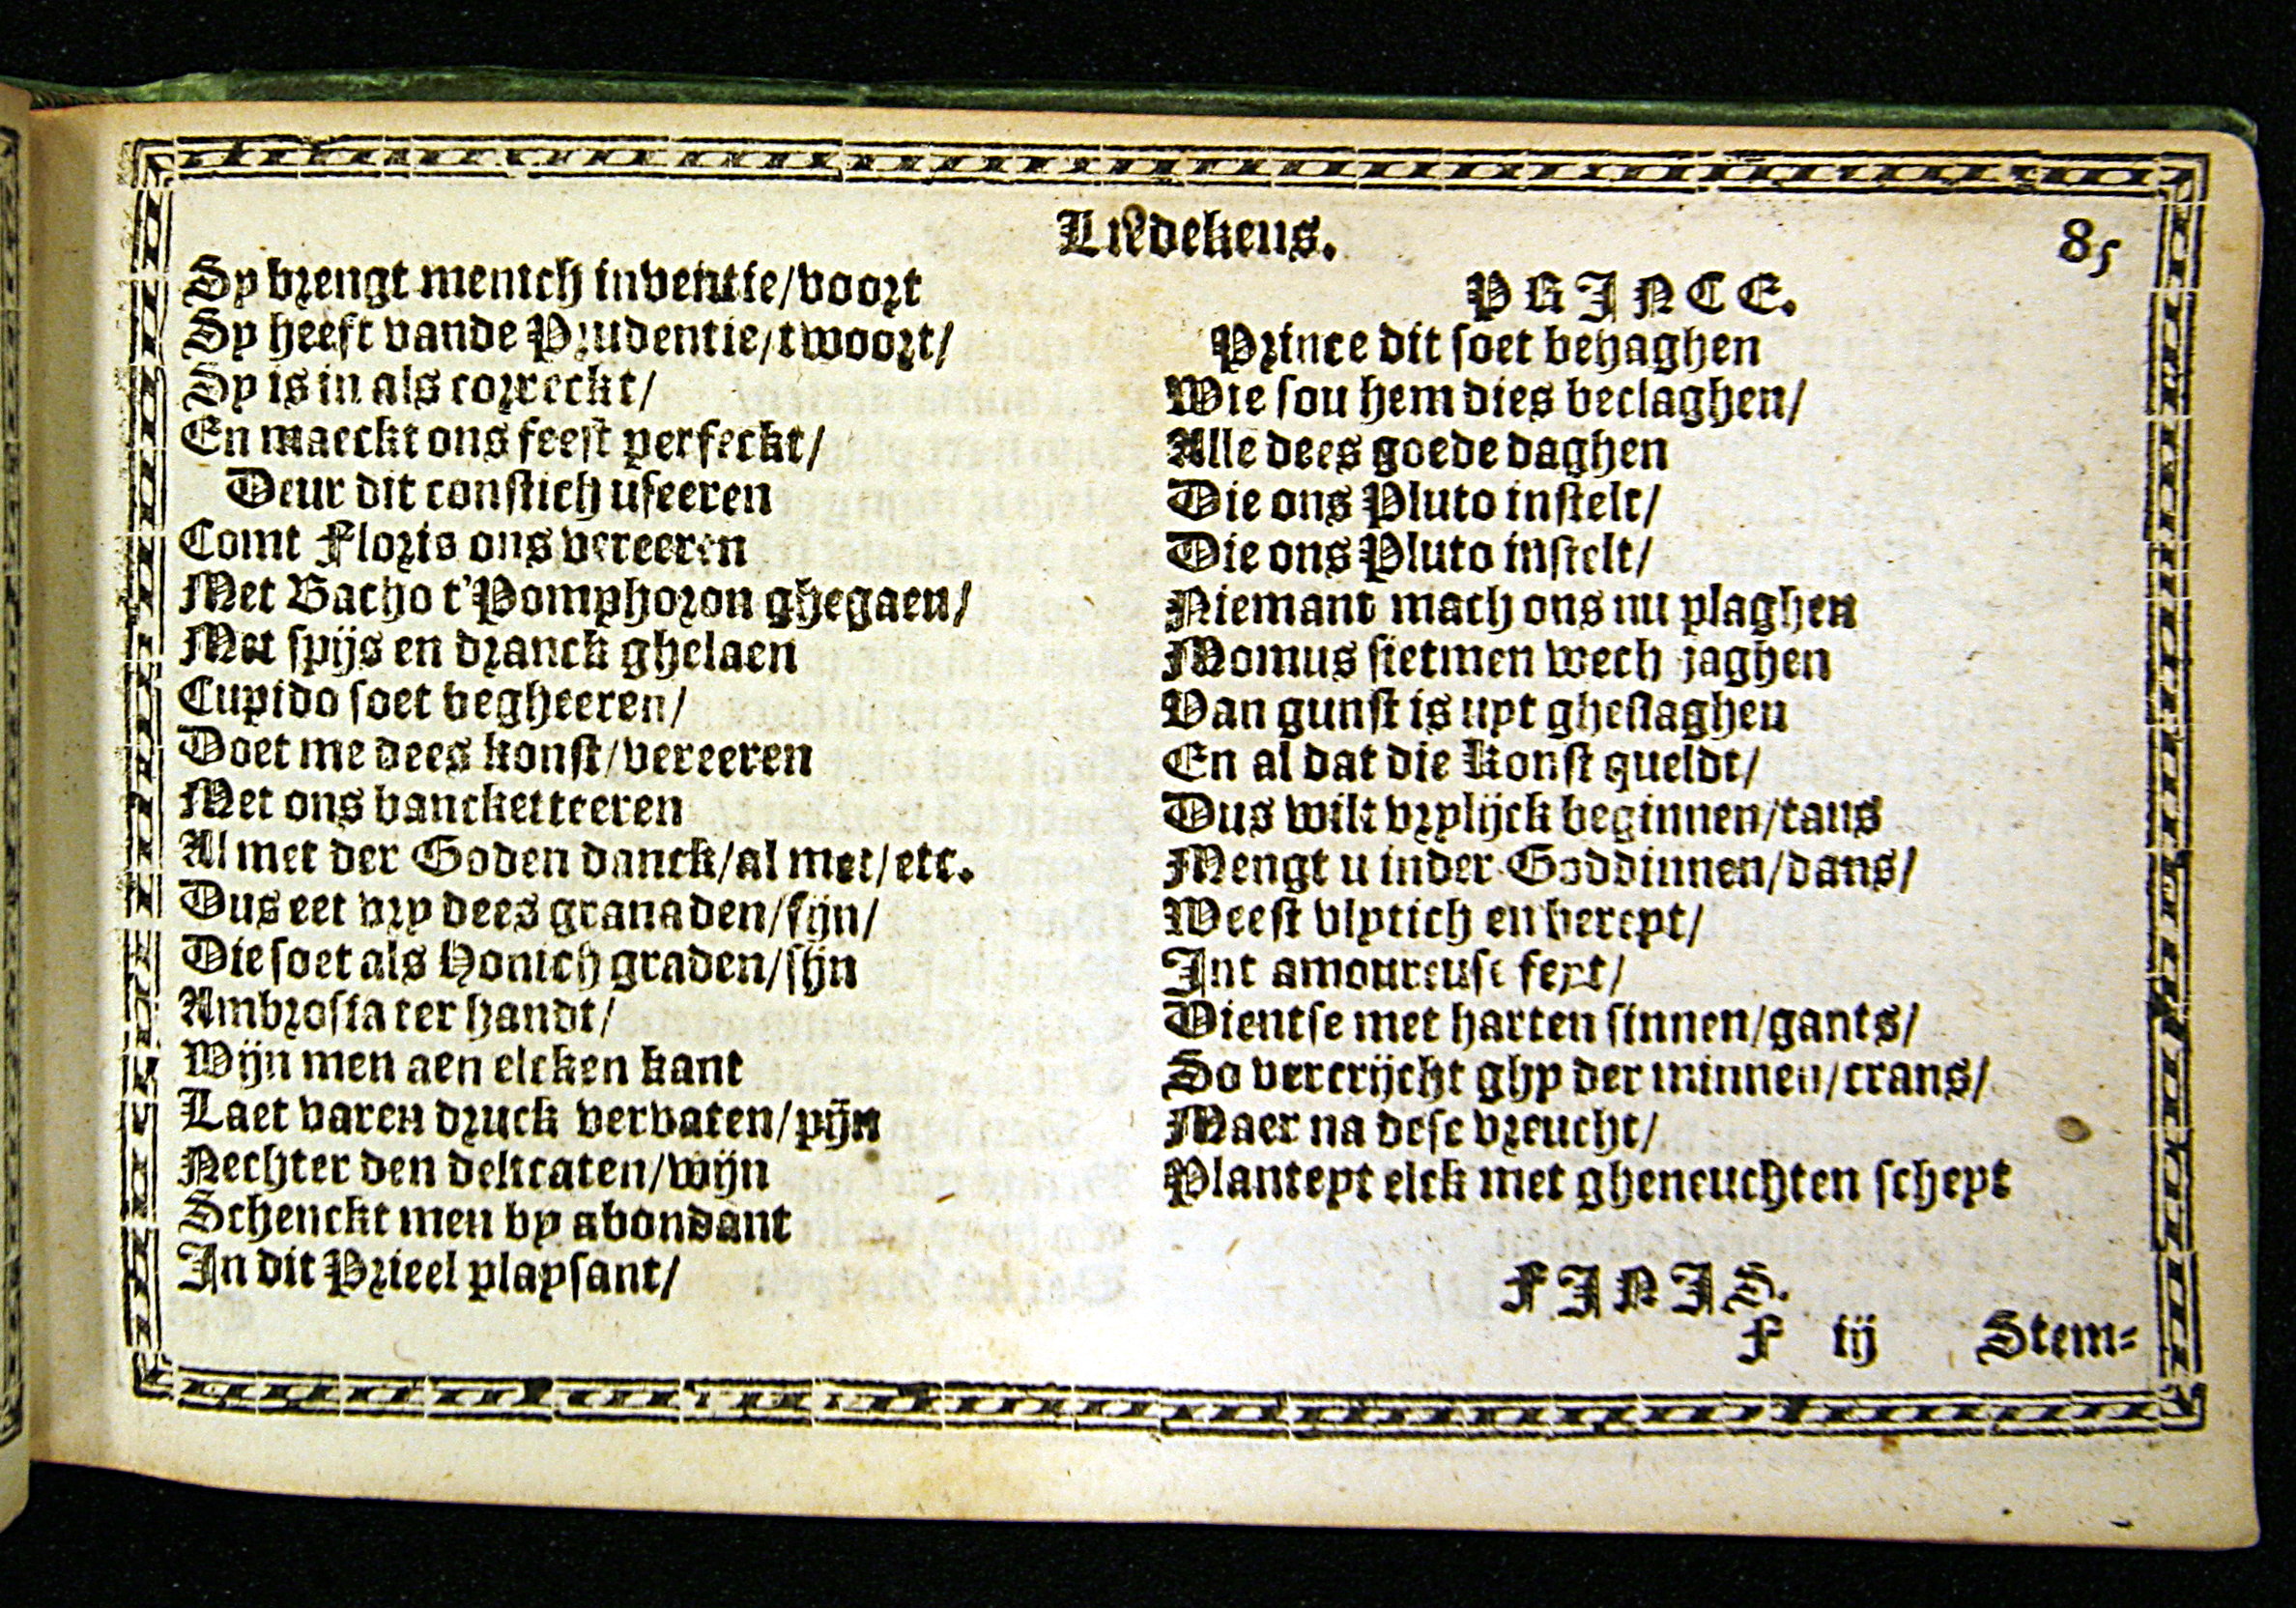 Liedekens.
85
Sy brengt menich inventie/voort
Sy heeft vande Prudentie/twoort/
Sy is in als correckt/
En maeckt ons feest perfeckt/
Deur dit constich useeren
Comt Floris ons vereeren
Met Bacho t'Pomphoron ghegaen/
Met spijs en dranck ghelaen
Cupido soet begheeren/
Doet me dees konst/vereeren
Met ons bancketteeren
Al met der Goden danck/al met/etc.
Dus eet vry dees granaden/fijn/
Die soet als Honich graden/sijn
Ambrosia ter handt/
Wijn men aen elcken kant
Laet varen druck vervaten/pijn
Nechter den delicaten/wijn
Schenckt men by abondant
In dit Prieel playsant/
PRINCE.
Prince dit soet behaghen
Wie sou hem dies beclaghen/
Alle dees goede daghen
Die ons Pluto instelt/
Die ons Pluto instelt/
Niemant mach ons nu plaghen
Momus sietmen wech jaghen
Van gunst is uyt gheslaghen
En al dat die konst queldt/
Dus wilt vrylijck beginnen/tans
Mengt u inder Goddinnen/dans/
Weest vlytich en bereyt/
Int amoureuse feyt/
Dientse met harten sinnen/gants/
So vercrijcht ghy der minnen/crans/
Maer na dese vreucht/
Planteyt elck met gheneuchten scheyt
FINIS.
F iij Stem-